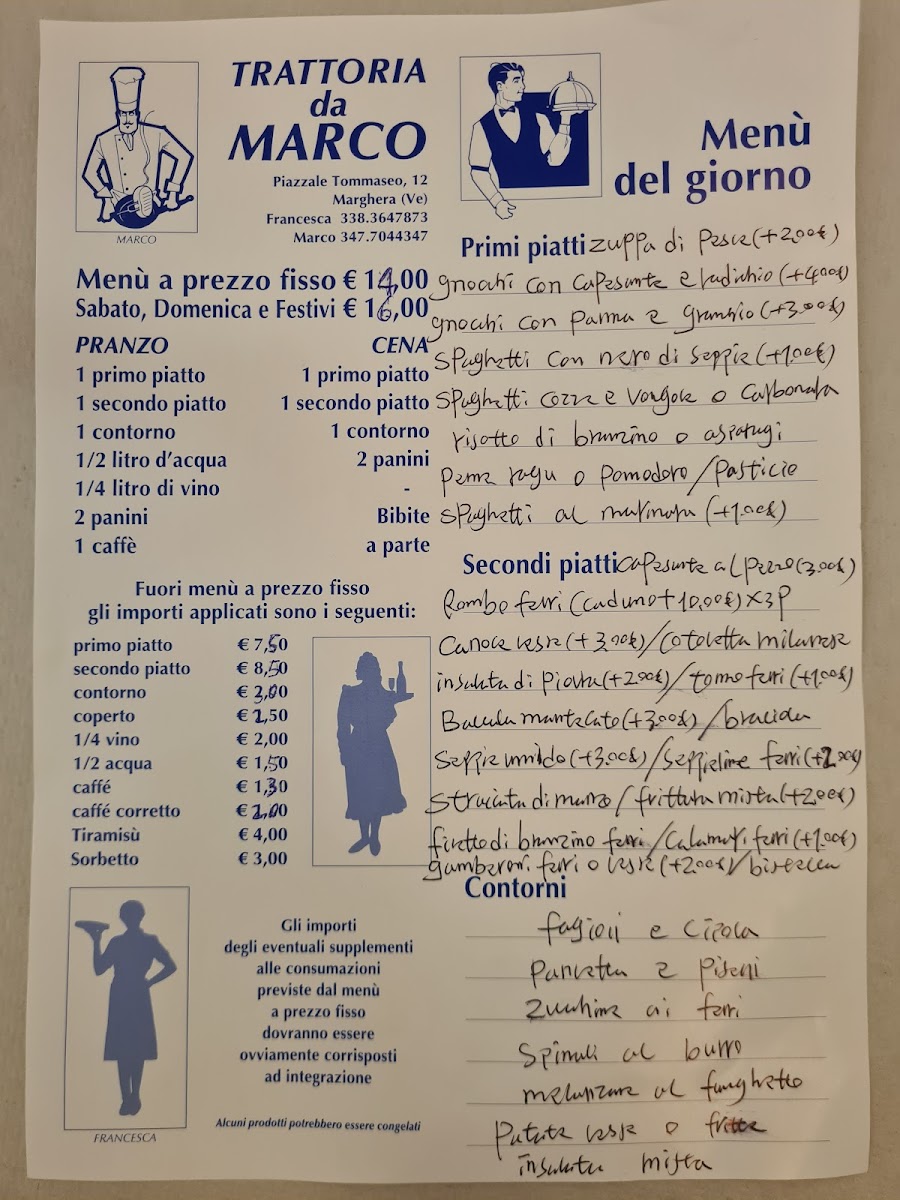 TRATTORIA
da
MARCO
Piazzale Tommaseo, 12
Marghera (Ve)
Francesca 338.3647873
Marco 347.7044347
MARCO
Menù a prezzo fisso € 14,00
Sabato, Domenica e Festivi € 16,00
PRANZO CENA
1 primo piatto 1 primo piatto
1 secondo piatto 1 secondo piatto
1 contorno 1 contorno
1/2 litro d'acqua 2 panini
1/4 litro di vino -
2 panini Bibite
1 caffè a parte
Fuori menù a prezzo fisso
gli importi applicati sono i seguenti:
primo piatto € 7,50
secondo piatto € 8,50
contorno € 3,00
coperto € 2,50
1/4 vino € 2,00
1/2 acqua € 1,50
caffé € 1,30
caffé corretto € 2,00
Tiramisù € 4,00
Sorbetto € 3,00
Gli importi
degli eventuali supplementi
alle consumazioni
previste dal menù
a prezzo fisso
dovranno essere
ovviamente corrisposti
ad integrazione
FRANCESCA
Alcuni prodotti potrebbero essere congelati
Menù
del giorno
Primi piatti zuppa di pesce (+2.00€)
gnocchi con capesante e radichio (+4.00€)
gnocchi con panna e granchio (+3.00€)
spaghetti con nero di seppie (+1.00€)
spaghetti cozze e vongole o carbonara
risotto di branzino o asparugi
penne ragu o pomodoro/pasticio
spaghetti al marinara (+1.00€)
Secondi piatti capesante al pezzo (3.00€)
Rombo ferri (caduno+10.00€) x3P
Canoce lesse (+3.00€)/cotoletta milanese
insalata di piovra (+2.00€)/tonno ferri (+1.00€)
Bacala mantecato (+3.00€)/braciola
seppie umido (+3.00€)/seppioline ferri (+2.00€)
straciata di manzo/frittura mista (+2.00€)
filetto di branzino ferri/calamari ferri (+1.00€)
gamberoni ferri o lesse (+2.00€)/bistecca
Contorni
fagioli e cipola
pancetta e piseni
zucchine ai ferri
spinali al burro
melanzane al funghetto
patate lesse o fritte
insalata mista